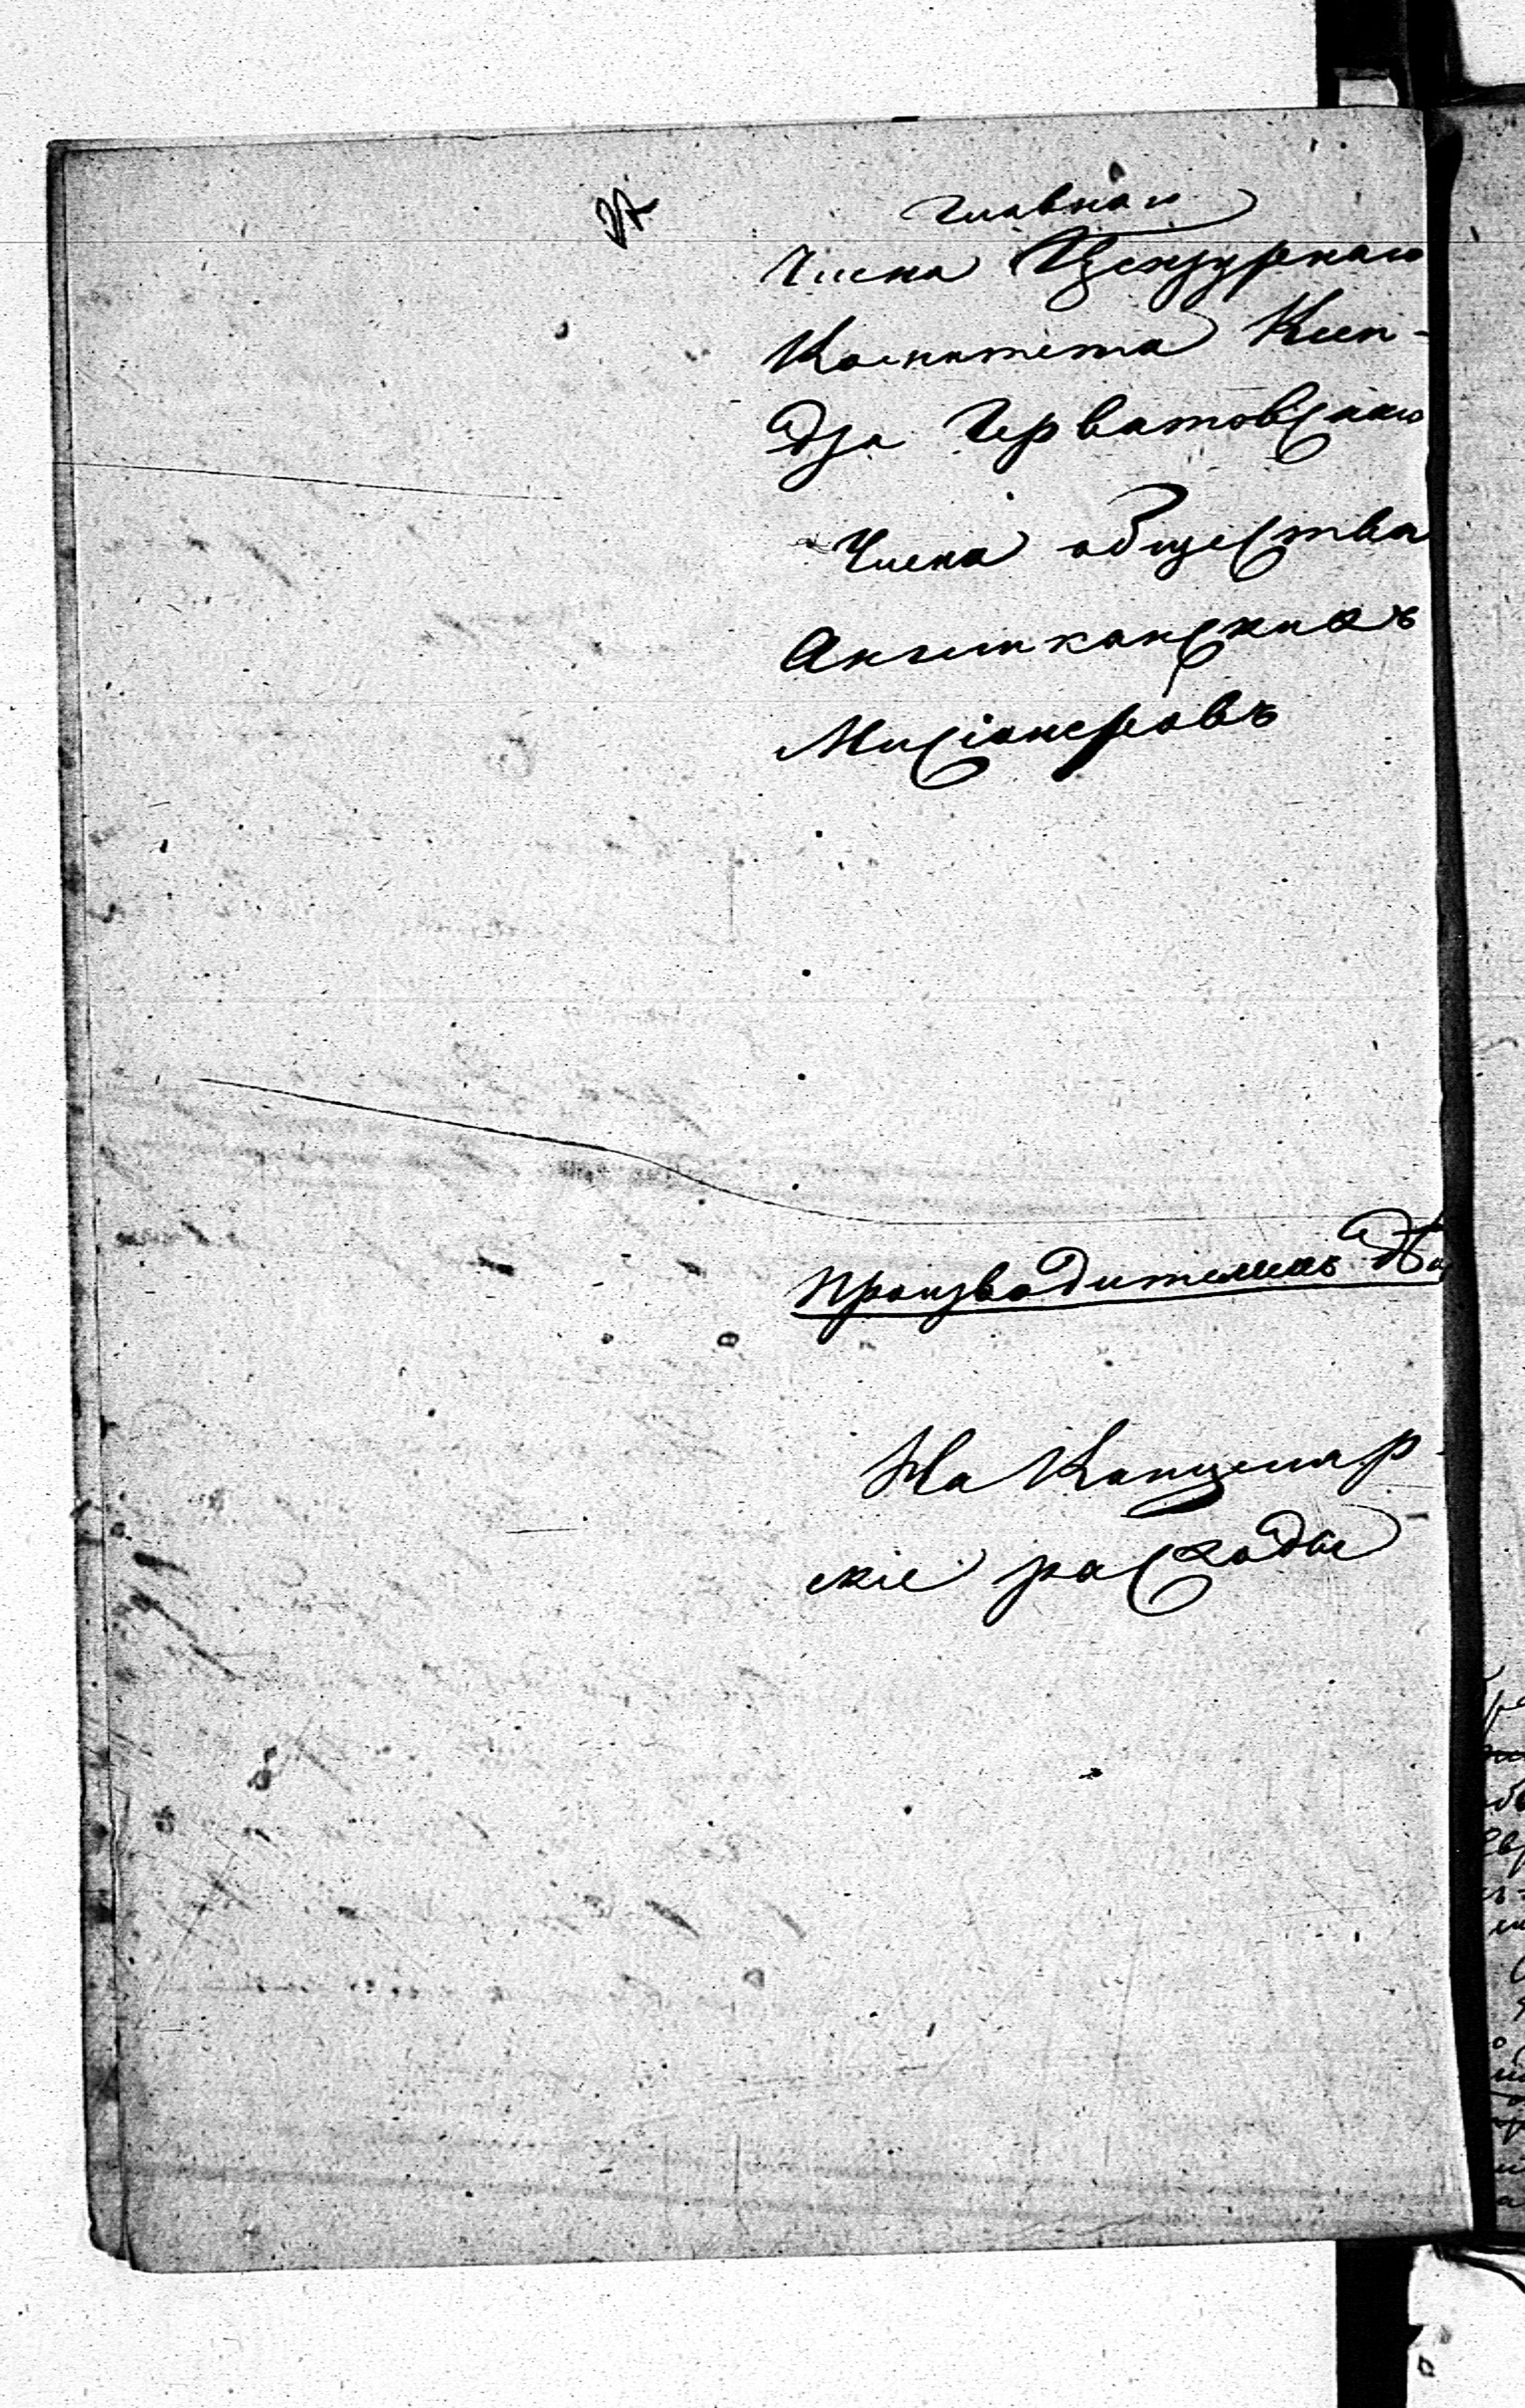 Главнаго
Члена Цензурнаго
Комитета Ксен-
дза Герватовскаго
Члена общества
Англиканскихъ
Мисіонеровъ
Производителемъ Дѣ
На Канцеляр-
скіе расходы